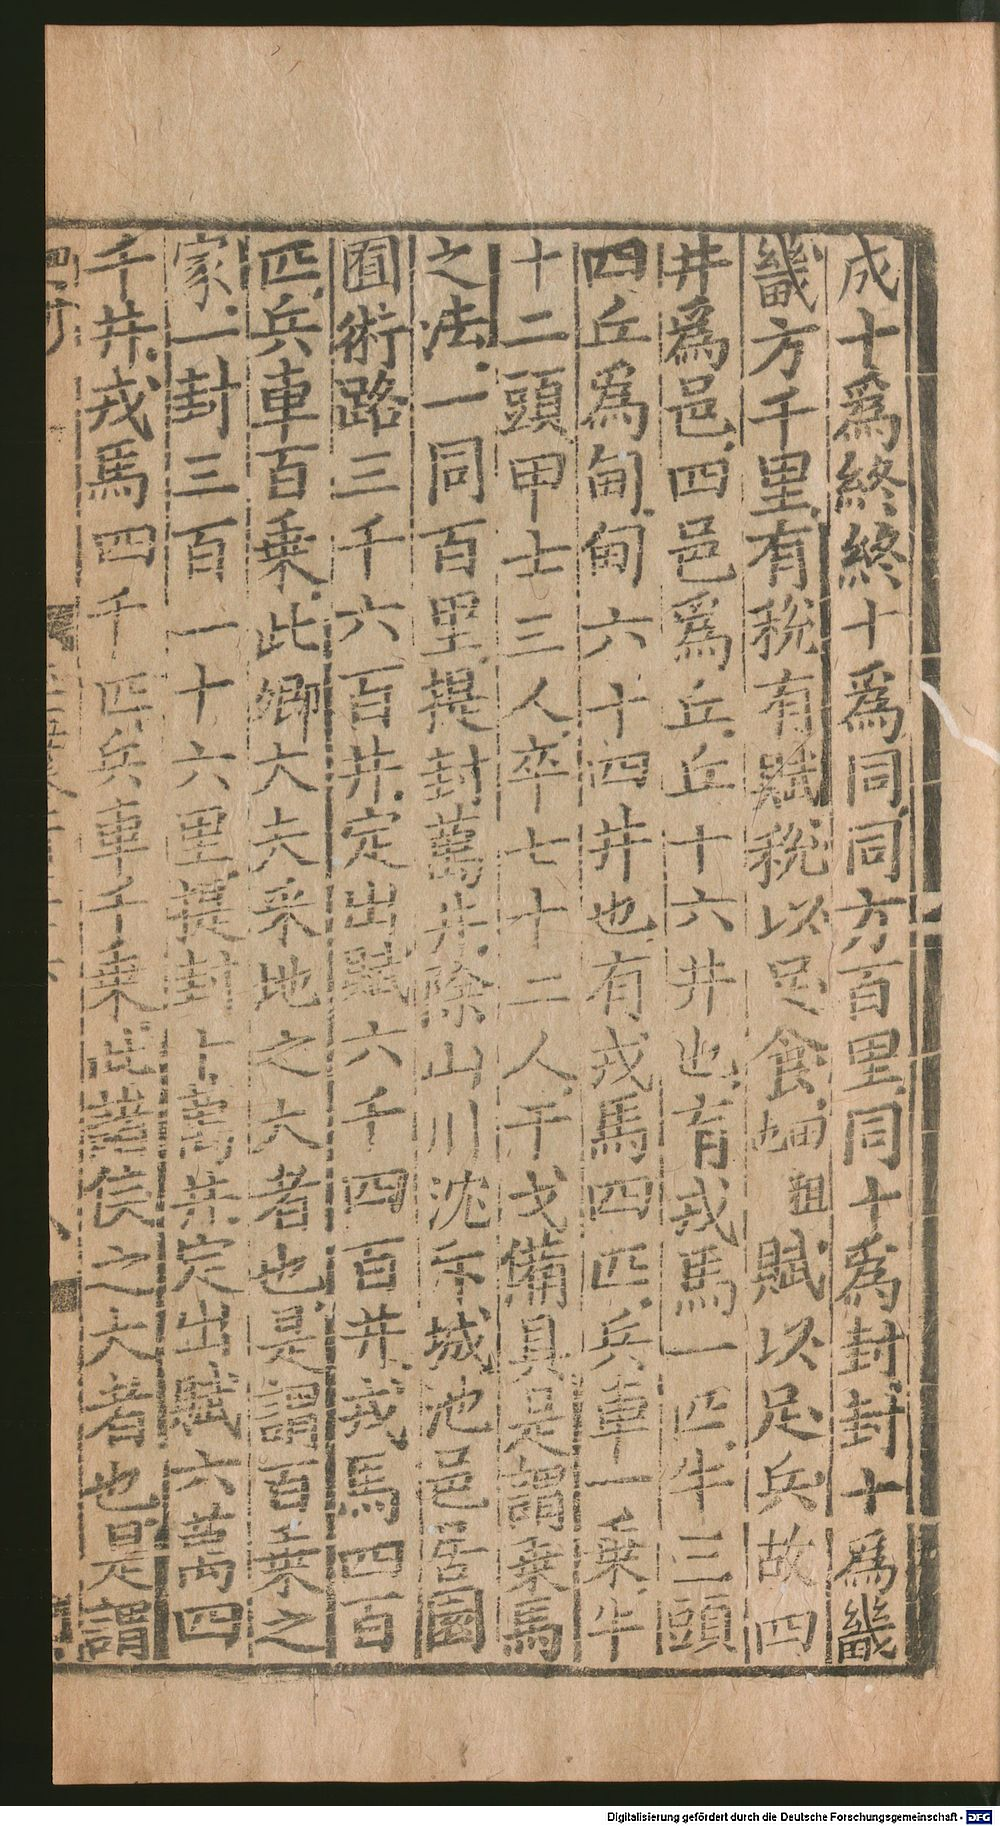 成十爲終終十爲同同方百里同十爲封封十爲畿
畿方千里有稅有賦稅以足食賦以足兵故四
井爲邑四邑爲丘丘十六井也有戎馬一匹牛三頭
四丘爲甸甸六十四井也有戎馬四匹兵車一乗牛
十二頭甲士三人卒七十二人干戈備具是謂乗馬
之法一同百里提封萬井除山川沈斥城池邑居園
囿術路三千六百井定出賦六千四百井戎馬四百
匹兵車百乗此卿大夫采地之大者也是謂百乗之
家一封三百一十六里提封十萬井定出賦六萬四
千井戎馬四千匹兵車千乗此諸侯之大者也是謂
Digitalisierung gefördert durch die Deutsche Forschungsgemeinschaft - DFG